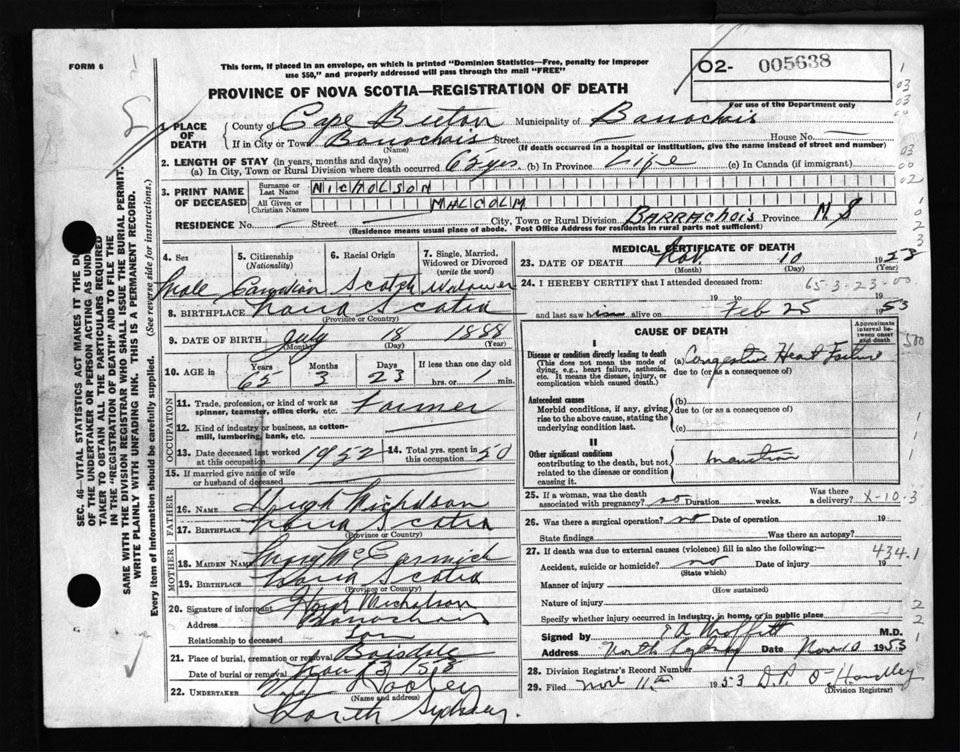 FORM 6
This form, if placed in an envelope, on which is printed "Dominion Statistics—Free, penalty for improper
use $50," and properly addressed will pass through the mail "FREE"
O2- 005638
For use of the Department only
PROVINCE OF NOVA SCOTIA—REGISTRATION OF DEATH
1. PLACE OF DEATH
County of Cape Breton Municipality of Barrachois
If in City or Town Barrachois Street House No. —
(Name) (If death occurred in a hospital or institution, give the name instead of street and number)
2. LENGTH OF STAY (in years, months and days)
(a) In City, Town or Rural Division where death occurred 65 yrs. (b) In Province Life (c) In Canada (if immigrant)
3. PRINT NAME OF DECEASED
Surname or Last Name NICHOLSON
All Given or Christian Names MALCOLM
RESIDENCE No. — Street — City, Town or Rural Division BARRACHOIS Province N S
(Residence means usual place of abode. Post Office Address for residents in rural parts not sufficient)
4. Sex 5. Citizenship (Nationality) 6. Racial Origin 7. Single, Married, Widowed or Divorced (write the word)
Male Canadian Scotch Widower
8. BIRTHPLACE Nova Scotia
(Province or Country)
9. DATE OF BIRTH July 18 1888
(Month) (Day) (Year)
10. AGE in Years Months Days If less than one day old
65 3 23 hrs. or min.
11. Trade, profession, or kind of work as spinner, teamster, office clerk, etc. Farmer
12. Kind of industry or business, as cotton-mill, lumbering, bank, etc.
13. Date deceased last worked at this occupation 1952 14. Total yrs. spent in this occupation 50
15. If married give name of wife or husband of deceased
OCCUPATION
FATHER
16. NAME Hugh Nicholson
17. BIRTHPLACE Nova Scotia
(Province or Country)
MOTHER
18. MAIDEN NAME Mary McCormick
19. BIRTHPLACE Nova Scotia
(Province or Country)
20. Signature of informant Hugh Nicholson
Address Barrachois
Relationship to deceased Son
21. Place of burial, cremation or removal Boisdale
Date of burial or removal Nov 13 1953
22. UNDERTAKER
(Name and address)
North Sydney.
MEDICAL CERTIFICATE OF DEATH
23. DATE OF DEATH Nov. 10 1953
(Month) (Day) (Year)
24. I HEREBY CERTIFY that I attended deceased from:
65-3-23-00
19 to 19
and last saw h alive on Feb 25 1953
CAUSE OF DEATH
Approximate interval between onset and death
I
Disease or condition directly leading to death
(This does not mean the mode of dying, e.g., heart failure, asthenia, etc. It means the disease, injury, or complication which caused death.)
(a) Congestive Heart Failure
due to (or as a consequence of)
Antecedent causes
Morbid conditions, if any, giving rise to the above cause, stating the underlying condition last.
(b)
due to (or as a consequence of)
(c)
II
Other significant conditions
contributing to the death, but not related to the disease or condition causing it.
Inanition
25. If a woman, was the death associated with pregnancy? no Duration weeks. Was there a delivery?
X-10-3
26. Was there a surgical operation? no Date of operation 19
State findings Was there an autopsy?
27. If death was due to external causes (violence) fill in also the following:—
434.1
Accident, suicide or homicide? no Date of injury 19
(State which)
Manner of injury
(How sustained)
Nature of injury
Specify whether injury occurred in industry, in home, or in public place
Signed by M.D.
Address North Sydney Date Nov 10 1953
28. Division Registrar's Record Number
29. Filed Nov 11th 1953 D.P. O'Handley
(Division Registrar)
SEC. 46—VITAL STATISTICS ACT MAKES IT THE
OF THE UNDERTAKER OR PERSON ACTING AS
TAKER TO OBTAIN ALL THE PARTICULARS REQUIRED
IN THE "REGISTRATION OF DEATH" AND TO FILE THE
SAME WITH THE DIVISION REGISTRAR WHO SHALL ISSUE THE BURIAL PERMIT.
WRITE PLAINLY WITH UNFADING INK. THIS IS A PERMANENT RECORD.
Every item of information should be carefully supplied. (See reverse side for instructions.)